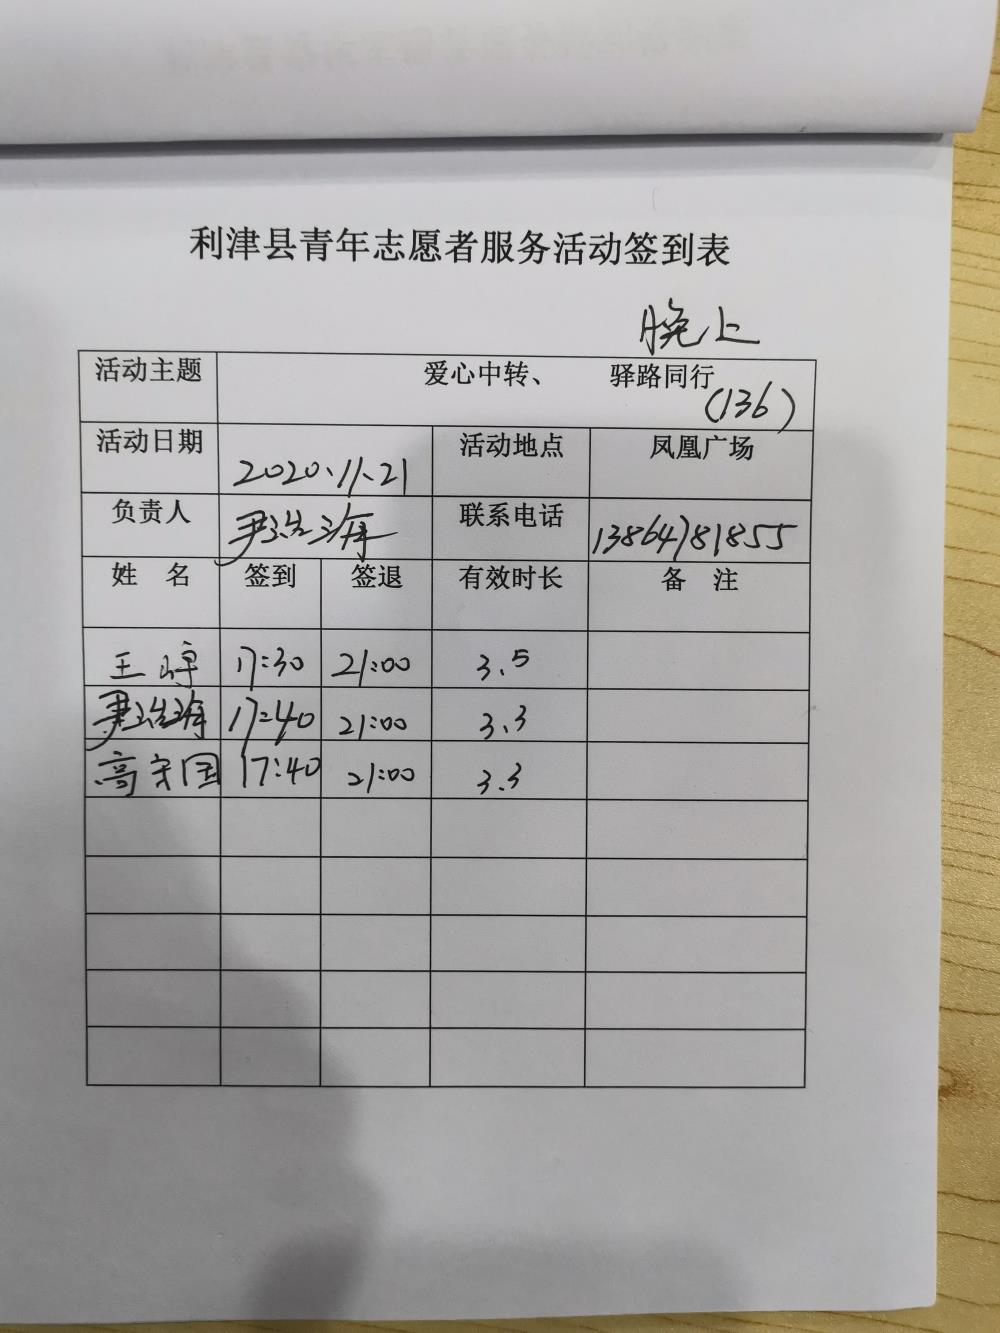 利津县青年志愿者服务活动签到表
晚上
活动主题 爱心中转、 驿路同行
(136)
活动日期 2020.11.21 活动地点 凤凰广场
负责人 尹 海 联系电话 13864781855
姓 名 签到 签退 有效时长 备 注
王 17:30 21:00 3.5
尹 海 17:40 21:00 3.3
高守国 17:40 21:00 3.3